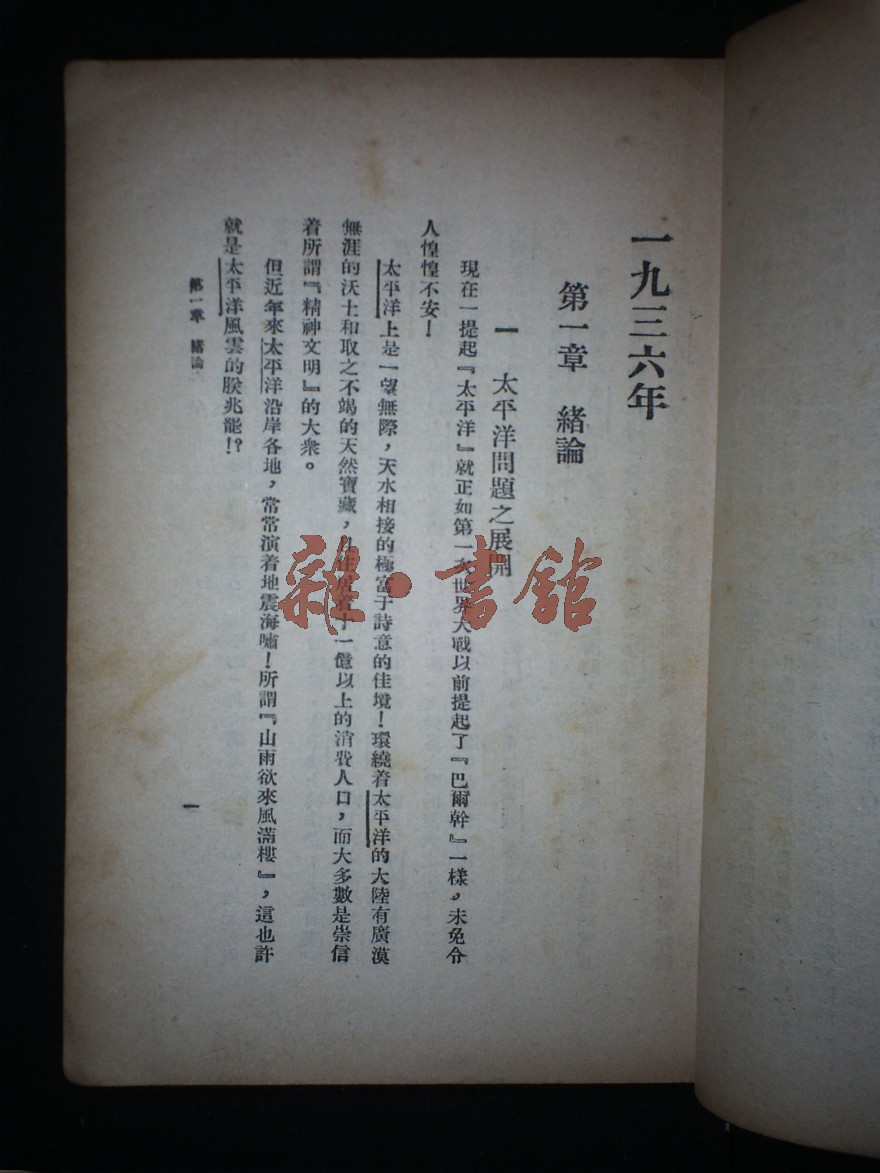 一九三六年
第一章　緒論
一　太平洋問題之展開
現在一提起『太平洋』就正如第一次世界大戰以前提起了『巴爾幹』一樣，未免令
人惶惶不安！
太平洋上是一望無際，天水相接的極富于詩意的佳境！環繞着太平洋的大陸有廣漠
無涯的沃土和取之不竭的天然寶藏，居着十一億以上的消費人口，而大多數是崇信
着所謂『精神文明』的大衆。
但近年來太平洋沿岸各地，常常演着地震海嘯！所謂『山雨欲來風滿樓』，這也許
就是太平洋風雲的朕兆罷！？
第一章　緒論
一
雜·書館